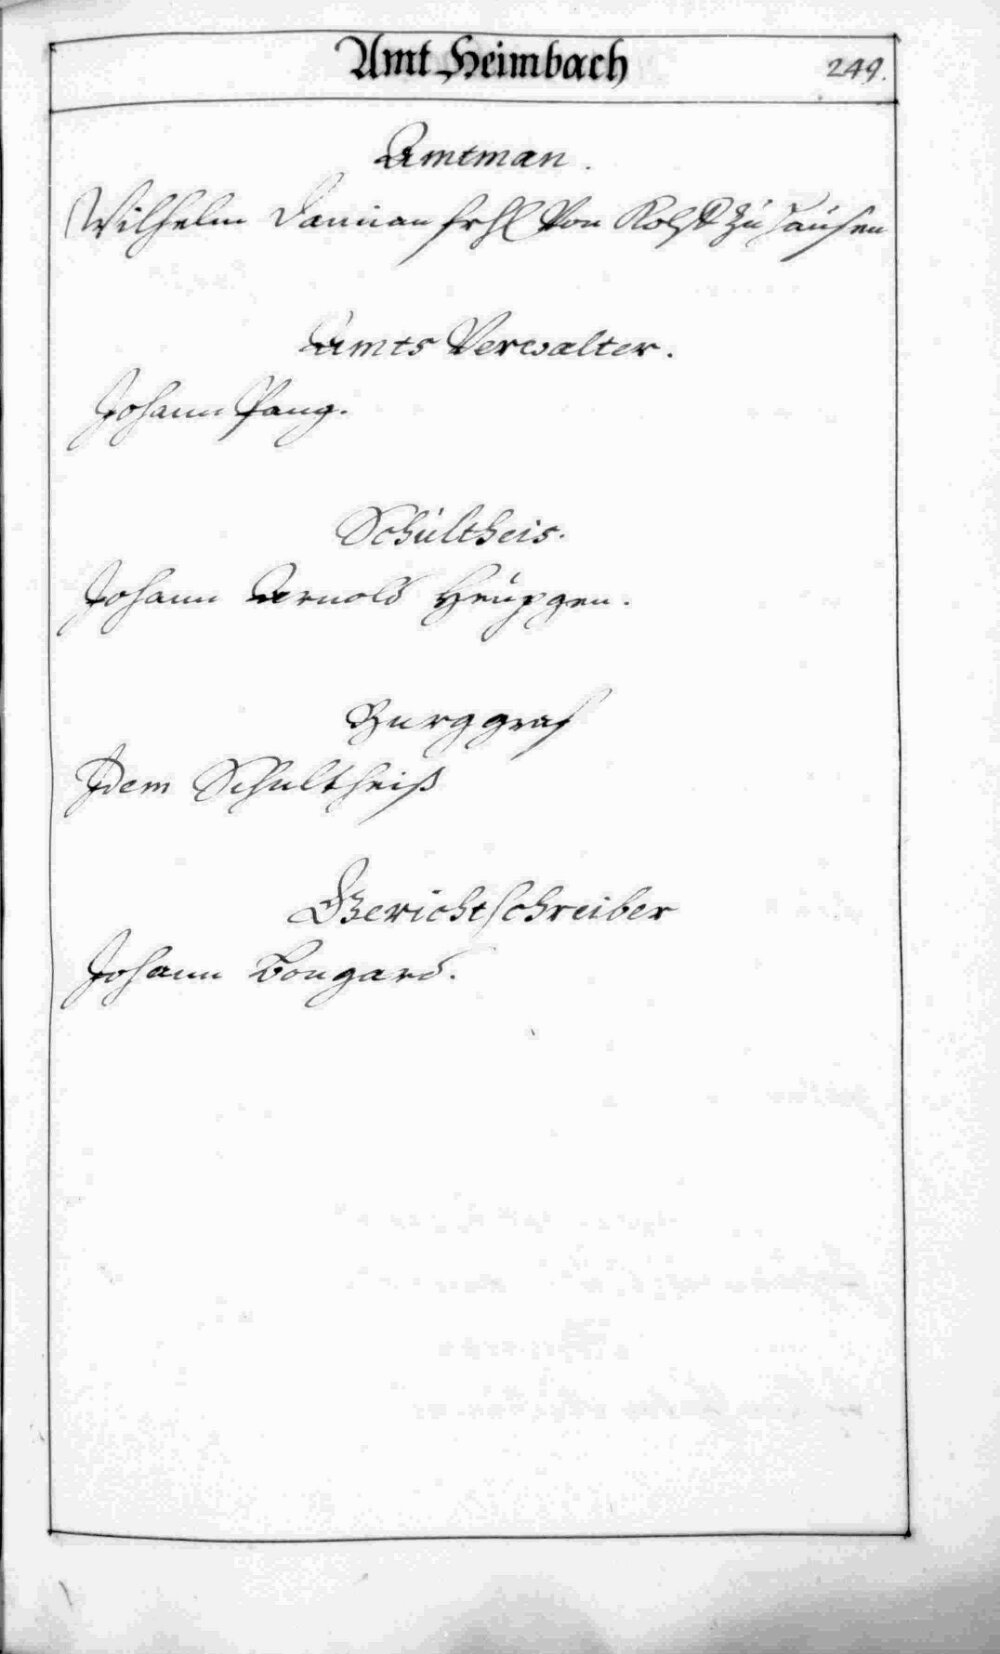 Amt Heimbach
249.
Amtman.
Wilhelm Damian frhl Von Kolff zu Hausen
Amts Verwalter.
Johann Pang.
Schultheis.
Johann Arnold Heupgen.
Burggraf
Idem Schultheiß
Gerichtschreiber
Johann Bongard.